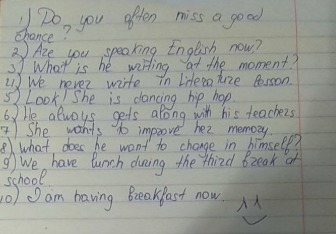 1) Do you often miss a good
chance?
2) Are you speaking English now?
3) What is he writing at the moment?
4) We never write in Literature lesson.
5) Look! She is dancing hip hop.
6) He always gets along with his teachers.
7) She wants to improve her memory.
8) what does he want to change in himself?
9) We have lunch during the third break at
school.
10) I am having breakfast now.